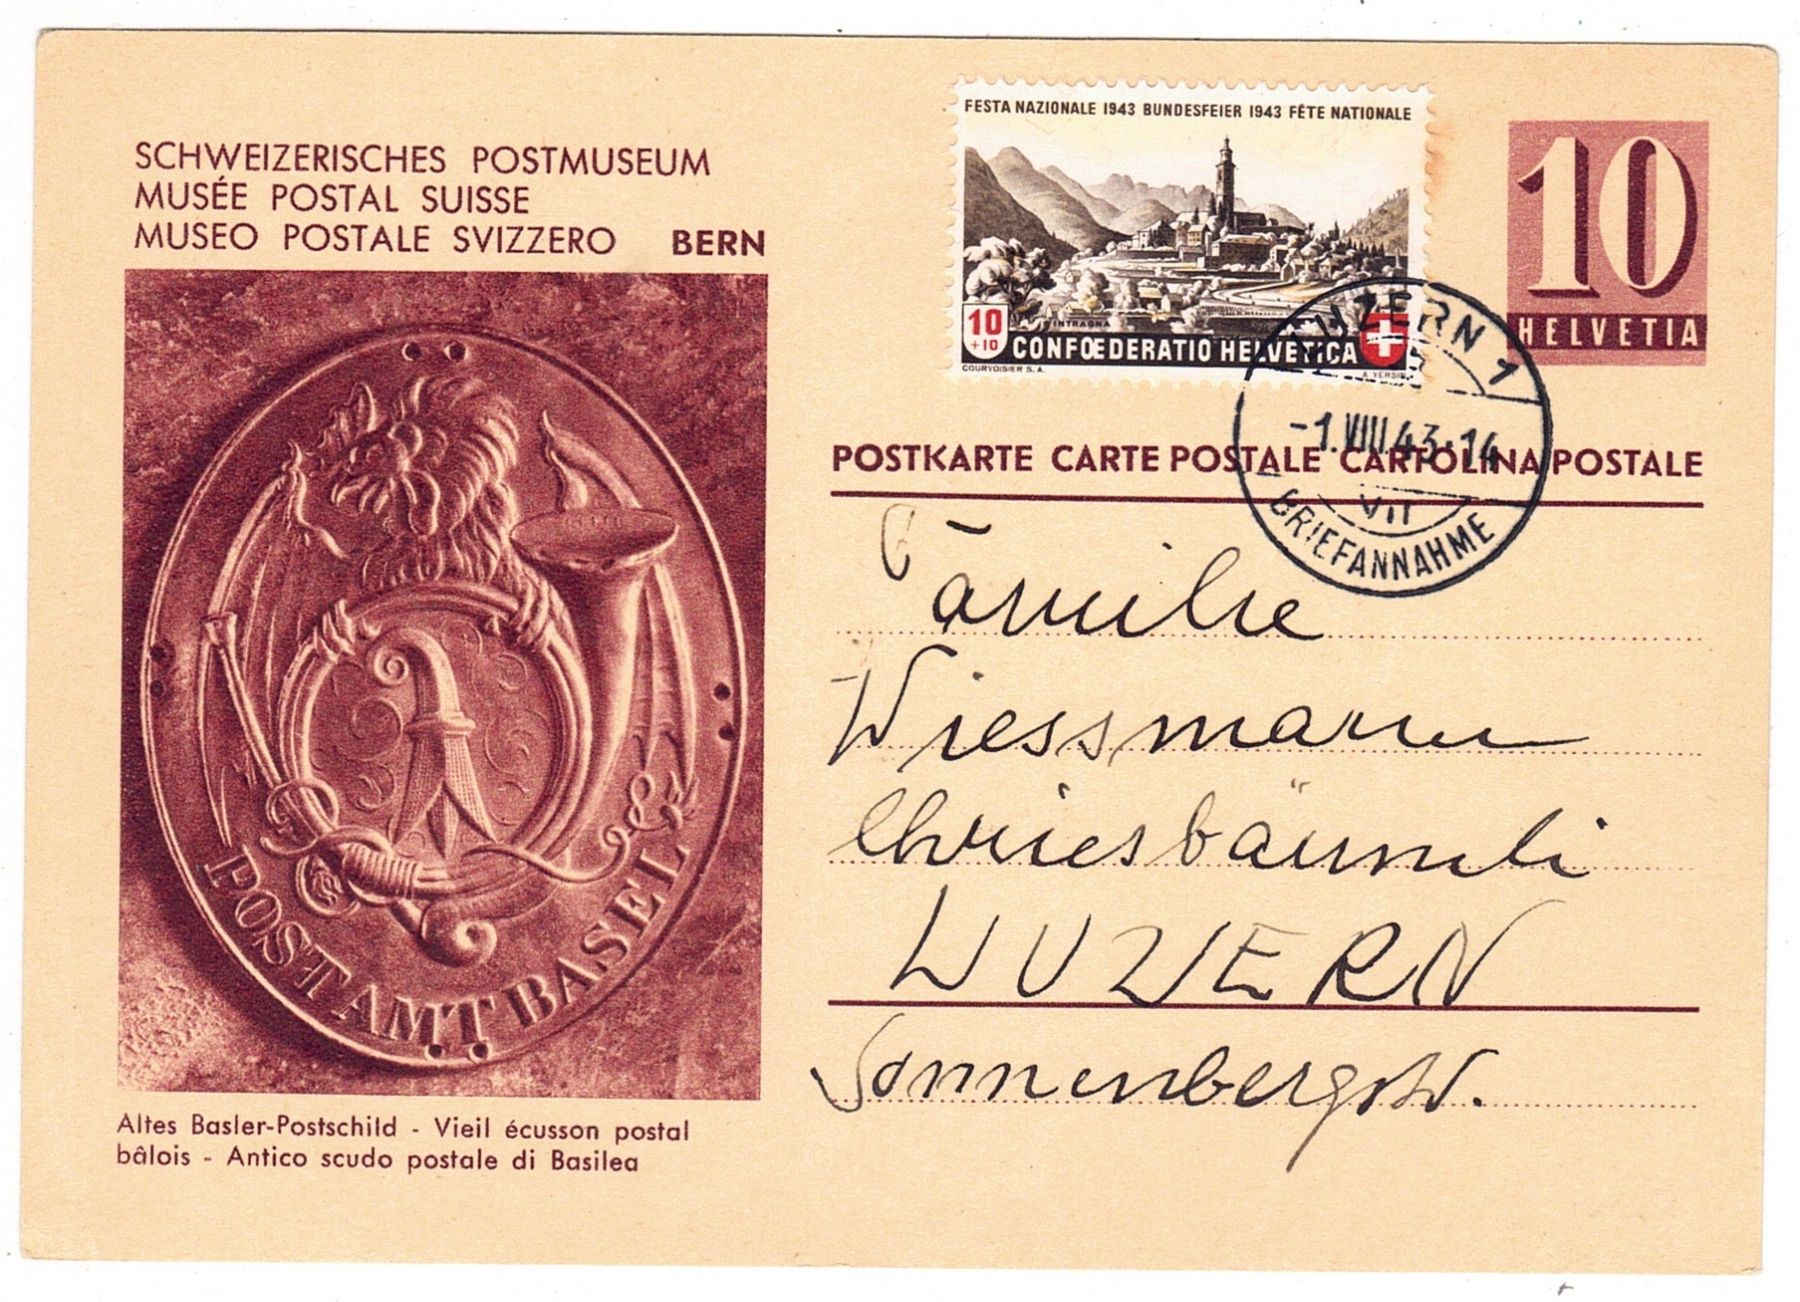 SCHWEIZERISCHES POSTMUSEUM
MUSÉE POSTAL SUISSE
MUSEO POSTALE SVIZZERO BERN
POSTAMT BASEL
Altes Basler-Postschild - Vieil écusson postal
bâlois - Antico scudo postale di Basilea
FESTA NAZIONALE 1943 BUNDESFEIER 1943 FÊTE NATIONALE
INTRAGNA
10
+10
CONFŒDERATIO HELVETICA
COURVOISIER S.A.
10
HELVETIA
LUZERN 1
-1.VIII.43-14
VII
BRIEFANNAHME
POSTKARTE CARTE POSTALE CARTOLINA POSTALE
Familie
Wiessmann
Chriesbäumli
LUZERN
Sonnenbergstr.